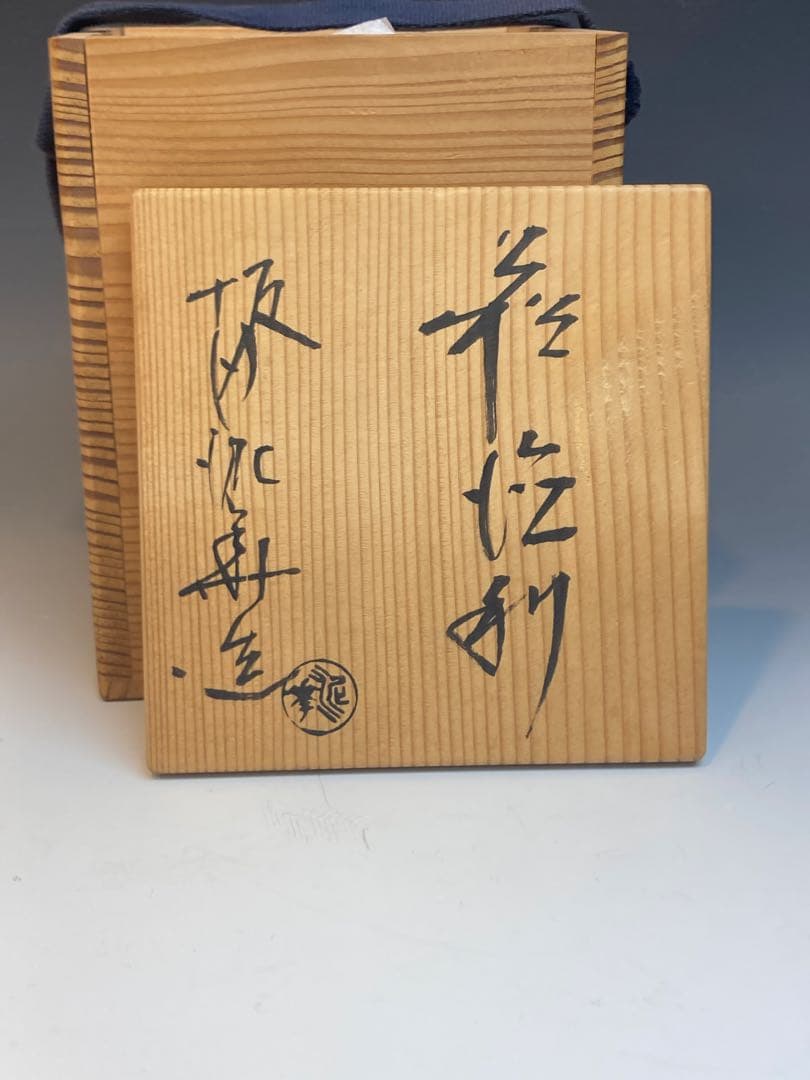 萩徳利
坂田泥華造
泥華